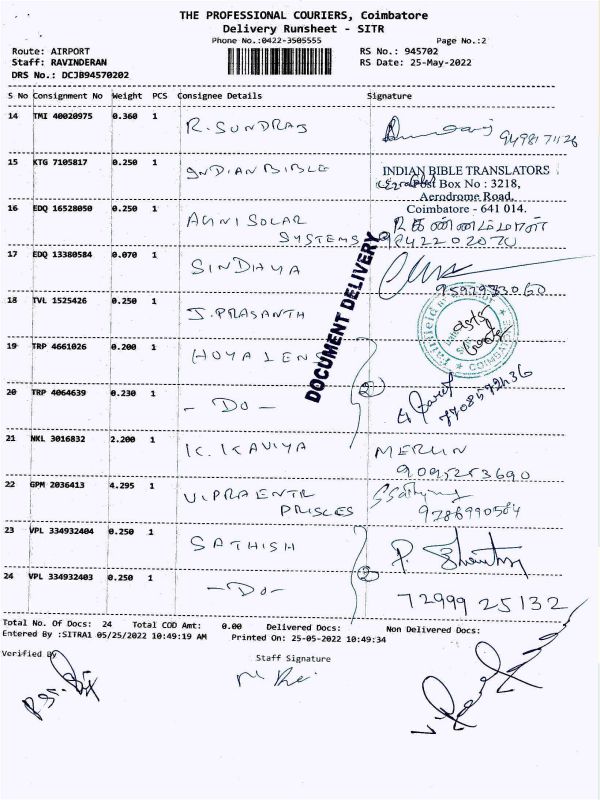 THE PROFESSIONAL COURIERS, Coimbatore
Delivery Runsheet - SITR
Phone No.:0422-3505555 Page No.:2
Route: AIRPORT RS No.: 945702
Staff: RAVINDERAN RS Date: 25-May-2022
DRS No.: DCJB94570202
S No Consignment No Weight PCS Consignee Details Signature
14 TMI 40020975 0.360 1 R. SUNDRAJ 9498171126
15 KTG 7105817 0.250 1 INDIAN BIBLE INDIAN BIBLE TRANSLATORS
Post Box No : 3218,
Aerodrome Road,
Coimbatore - 641 014.
16 EDQ 16528050 0.250 1 AGNI SOLAR
SYSTEMS 9842202070
17 EDQ 13380584 0.070 1 SINDHYA
18 TVL 1525426 0.250 1 J. PRASANTH
DOCUMENT DELIVERY
19 TRP 4661026 0.200 1 HOYA LENS
20 TRP 4064639 0.230 1 - DO - 2
21 NKL 3016832 2.200 1 K. KAVIYA MERLIN
9095253690
22 GPM 2036413 4.295 1 VIPRA ENTR
PRISCES 9286990584
23 VPL 334932404 0.250 1 SATHISH
24 VPL 334932403 0.250 1 - DO - 2 72999 25132
Total No. Of Docs: 24 Total COD Amt: 0.00 Delivered Docs: Non Delivered Docs:
Entered By :SITRA1 05/25/2022 10:49:19 AM Printed On: 25-05-2022 10:49:34
Verified By Staff Signature